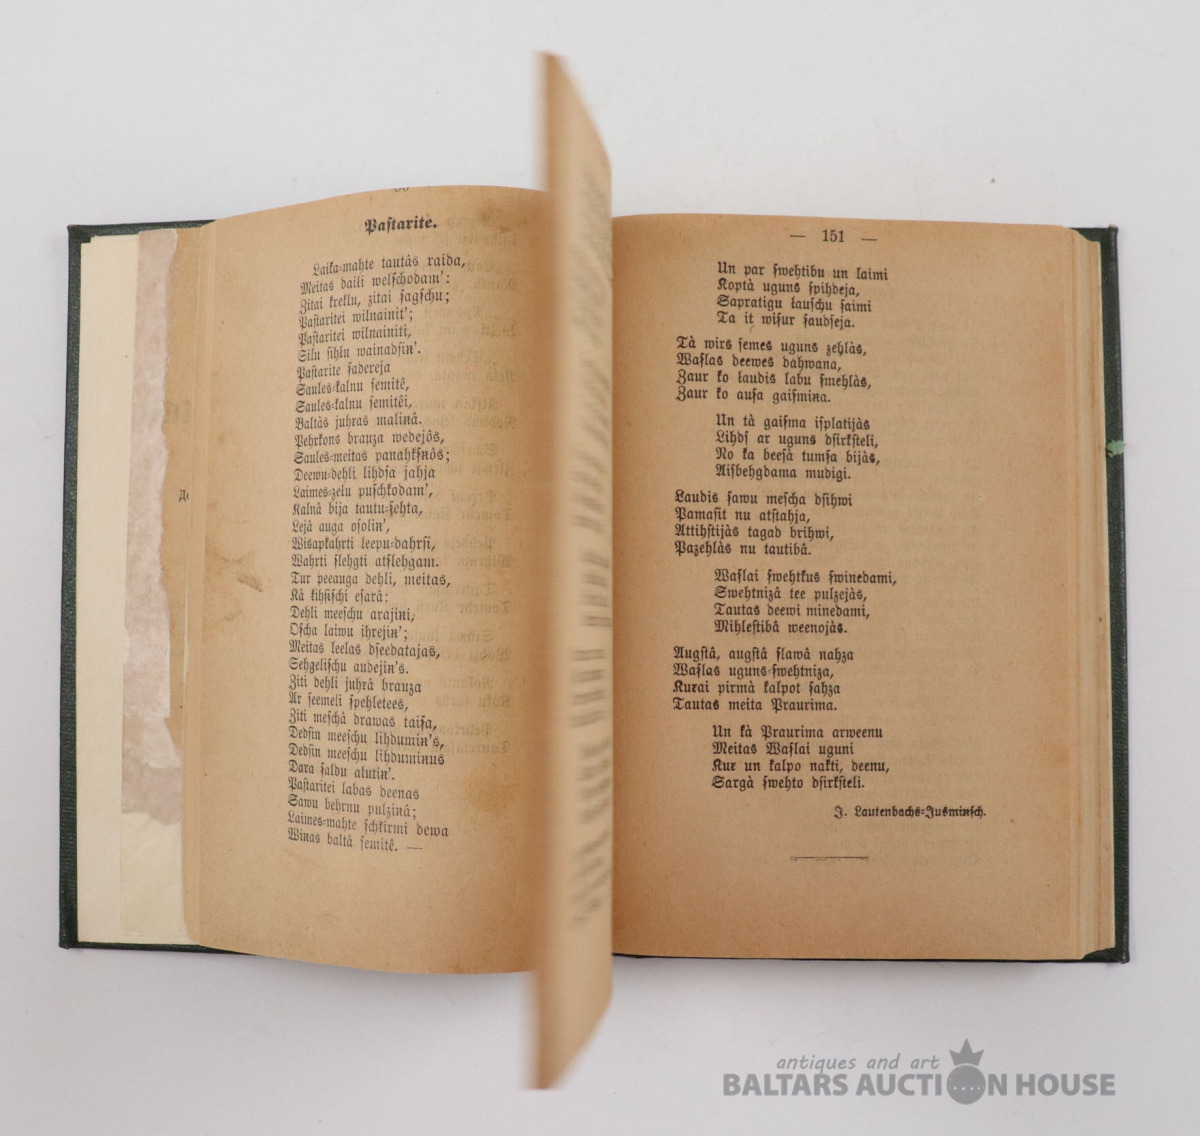 Paſtarite.
Laika-mahte tautâs raida,
Meitas daili welſchodam’:
Zitai kreklu, zitai ſagſchu;
Paſtaritei wilnainit’;
Paſtaritei wilnainiti,
Silu ſihlu wainadſin’.
Paſtarite ſadereja
Saules-kalnu ſemitê,
Saules-kalnu ſemitêi,
Baltâs juhras malinâ.
Pehrkons brauza wedejôs,
Saules-meitas panahkſnôs;
Deewu-dehli lihdſa jahja
Laimes-zelu puſchkodam’,
Kalnâ bija tautu-ſehta,
Lejâ auga oſolin’,
Wiſapkahrti leepu-dahrſi,
Wahrti ſlehgti atſlehgam.
Tur peeauga dehli, meitas,
Kà kihſiſchi eſarâ:
Dehli meeſchu arajini,
Oſcha laiwu ihrejin’;
Meitas leelas dſeedatajas,
Sehgeliſchu audejin’s.
Ziti dehli juhrâ brauza
Ar ſeemeli ſpehletees,
Ziti meſchâ drawas taiſa,
Dedſin meeſchu lihdumin’s,
Dedſin meeſchu lihduminus
Dara ſaldu alutin’.
Paſtaritei labas deenas
Sawu behrnu pulzinâ;
Laimes-mahte ſchkirmi dewa
Winas baltâ ſemitê. —
— 151 —
Un par ſwehtibu un laimi
Koptà uguns ſpihdeja,
Sapratigu łauſchu ſaimi
Ta it wiſur ſaudſeja.
Tà wirs ſemes uguns zehlàs,
Waſlas deewes dahwana,
Zaur ko łaudis labu ſmehlàs,
Zaur ko auſa gaiſmina.
Un tà gaiſma iſplatijàs
Lihdſ ar uguns dſirkſteli,
No ka beeſà tumſa bijàs,
Aiſbehgdama mudigi.
Laudis ſawu meſcha dſihwi
Pamaſit nu atſtahja,
Attihſtijàs tagad brihwi,
Pazehlàs nu tautibâ.
Waſlai ſwehtkus ſwinedami,
Swehtnizâ tee pulzejàs,
Tautas deewi minedami,
Mihleſtibâ weenojàs.
Augſtâ, augſtâ ſlawâ nahza
Waſlas uguns-ſwehtniza,
Kurai pirmà kalpot ſahza
Tautas meita Praurima.
Un kà Praurima arweenu
Meitas Waſlai uguni
Kur un kalpo nakti, deenu,
Sargà ſwehto dſirkſteli.
J. Lautenbachs-Jusminſch.
antiques and art
BALTARS AUCTION HOUSE